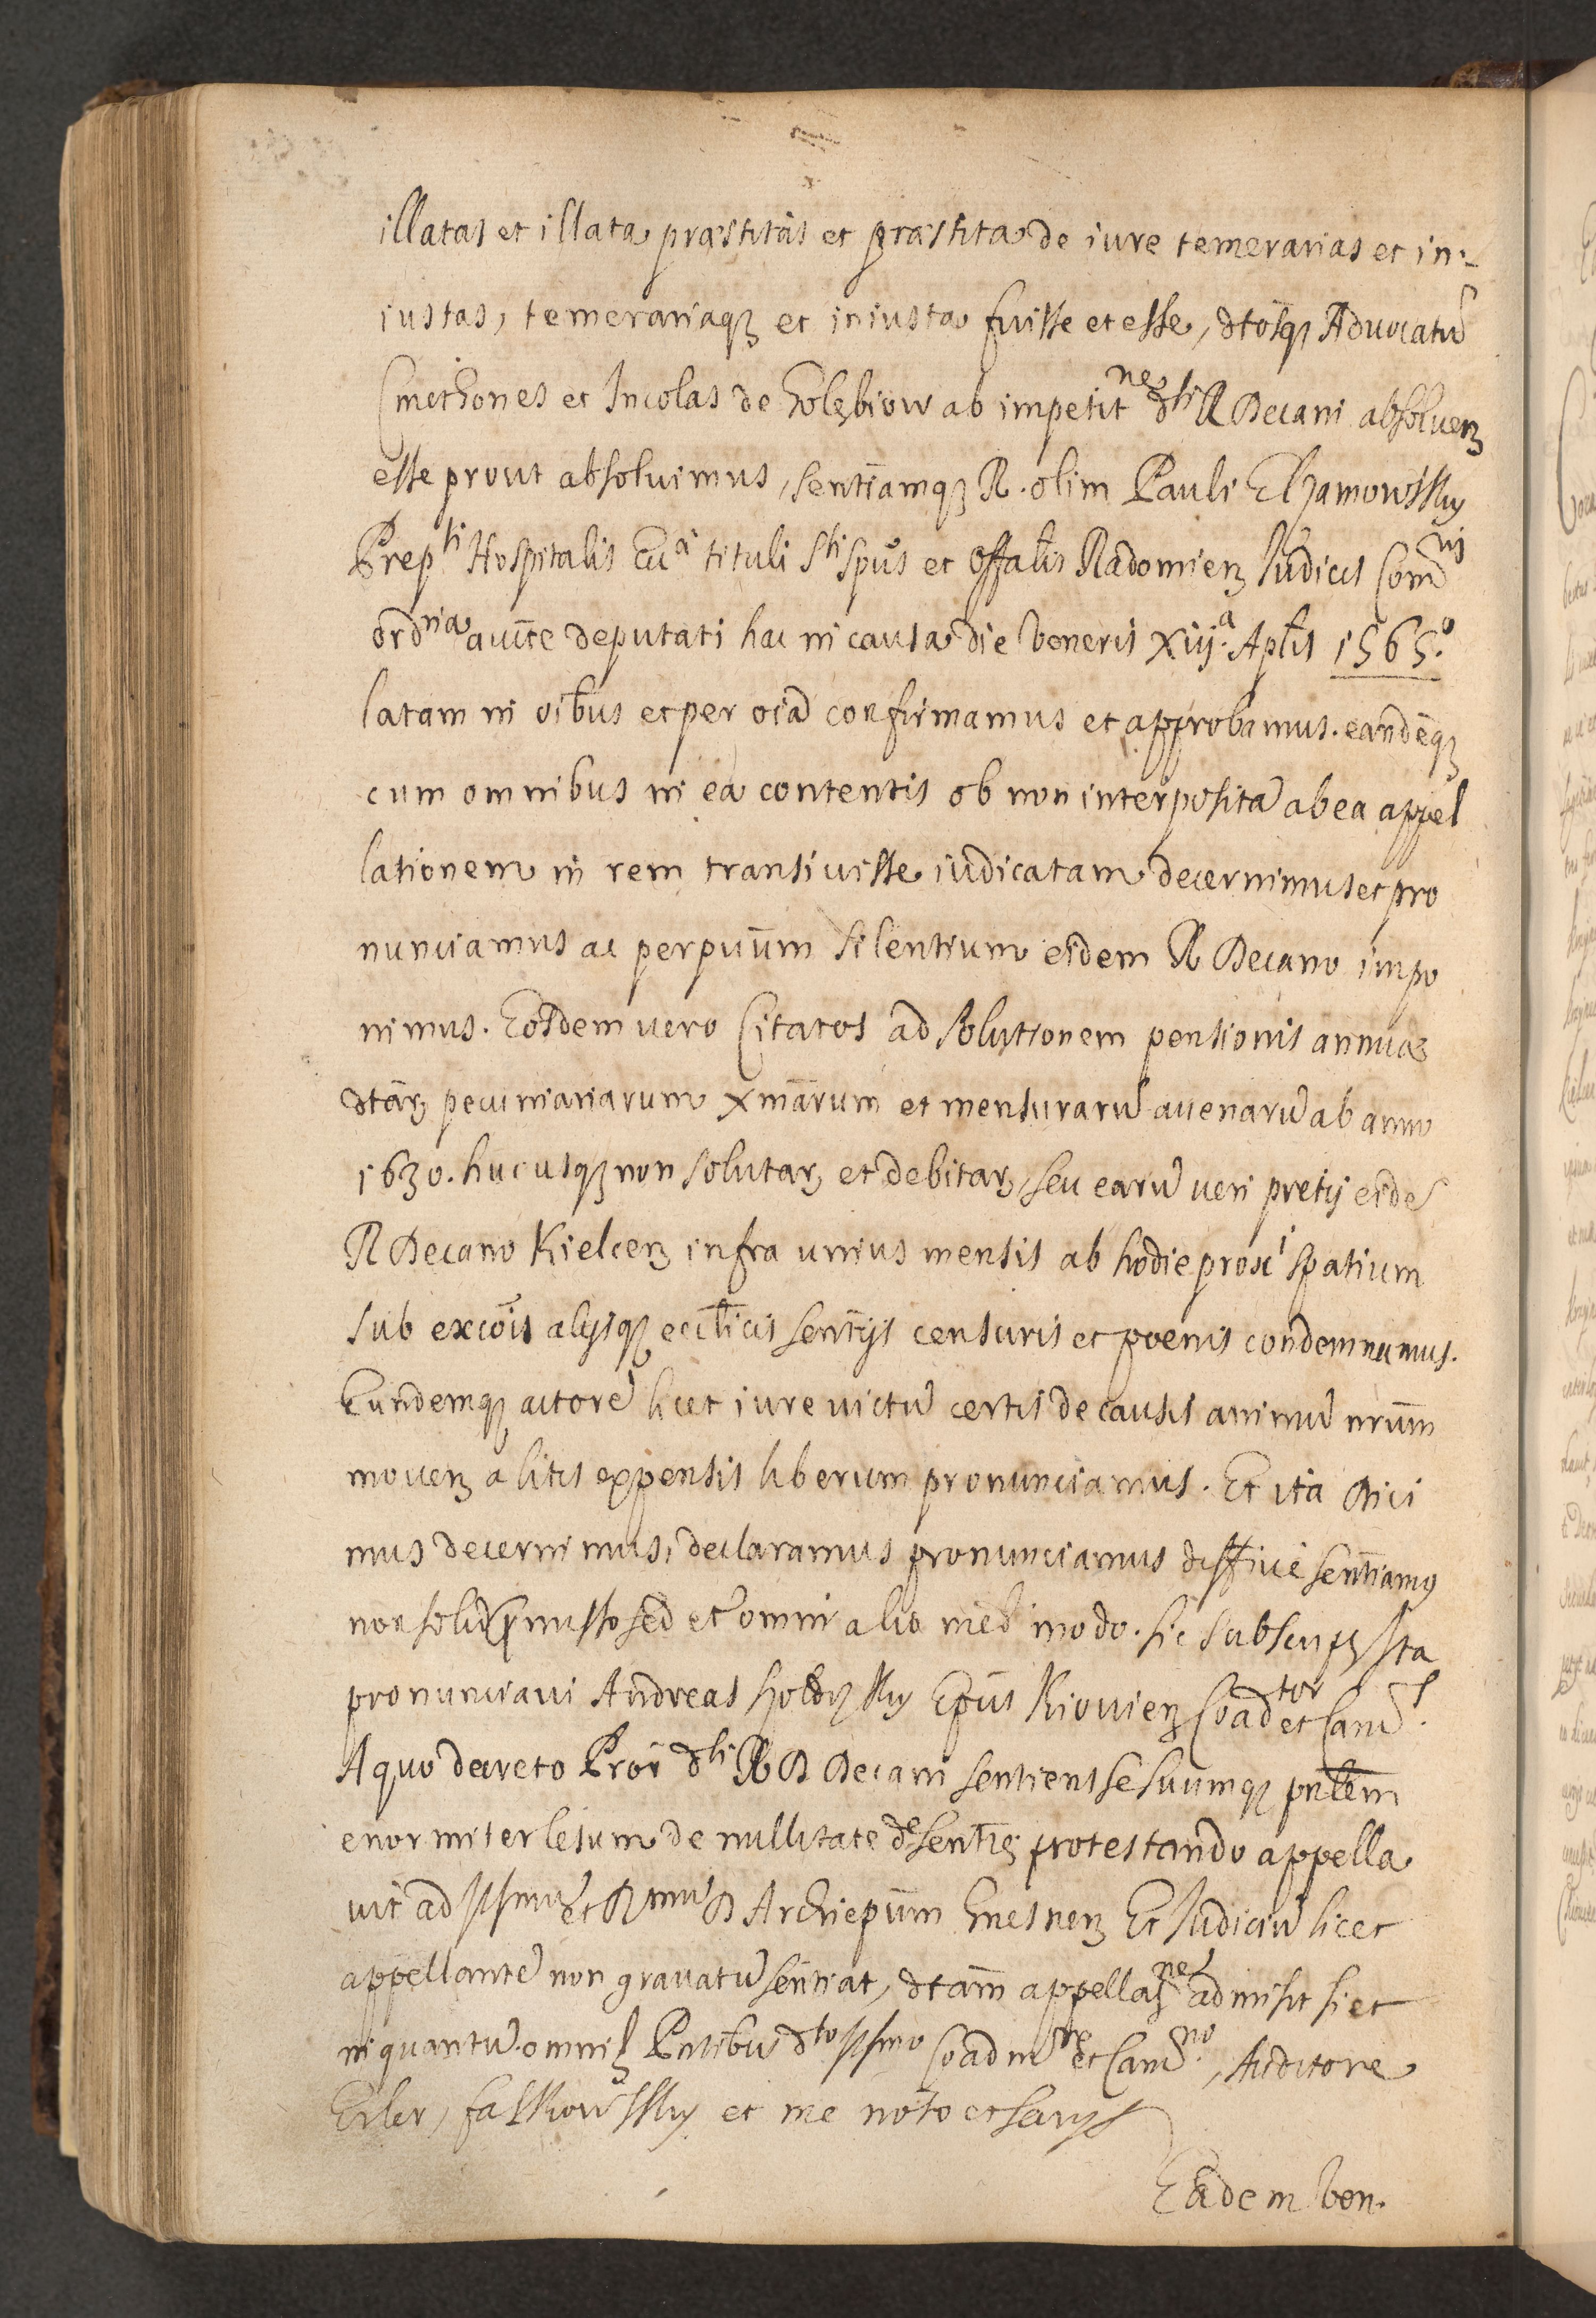 illatas et illata præstitas et præstita de iure temerarias et in-
iustas, temerariaqꝫ et iniusta fuisse et esse, dtosqꝫ Aduocatũ
Cmethones et Incolas de Golębiow ab impetitne dti R Decani absoluenꝫ
esse prout absoluimus, senticamqꝫ R. olim Pauli
Prepti Hospitalis tituli Sti Spũs et Offalis Radomienꝫ Iudicis Comis
ordria aucte deputati hac in causa die Veneris xiija. Aplis 1565.o
latam in oibus et per oia confirmamus et approbamus. eandẽqꝫ
cum omnibus in ea contentis ob non interpositã ab ea appel
lationem in rem transiuisse iudicatam decernimus et pro
nunciamus ac perpuum silentium eidem R Decano impo
nimus. Eosdem vero Citatos ad solutionem pensionis annuæ
dtarꝫ pecuniariarum xmarum et mensurarũ auenarũ ab anno
1630. hucusqꝫ non solutarꝫ et debitarꝫ, seu earũ veri pretij eidẽ
R Decano Kielcenꝫ infra unius mensis ab hodie proxi spatium
sub excois alijsqꝫ eccticis sentijs censuris et poenis condemnamus.
Eundemqꝫ actorẽ licet iure victũ certis de causis animũ nrum
mouenꝫ a litis expensis liberum pronunciamus. Et ita dici
mus decernimus, declaramus pronunciamus diffiue sentiamus
non solũ pmisso sed et omni alio með modo. sic subscripꝫ Ita
pronunciaui Andreas Epus Kiouienꝫ Coadtor et Canc̃s.
A quo decreto Pror dti R D Decani sentiens se suumqꝫ pnlem
enormiter lesum de nullitate de sentiæ protestando appella
uit ad Issmũ et Rmũ D Archiepum Gnesnenꝫ Et Iudiciũ licet
appellantẽ non grauatũ sentiat, dtam appellanẽ admisit si et
in quantũ. omniꝫ Pntibus dto Issmo Coadine et Canno, Auditore
et me noto et scripsi
Eadem Ven.